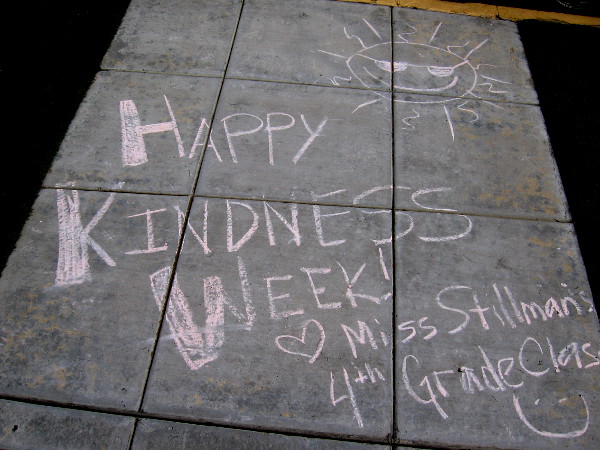 Happy
Kindness
Week!
Miss Stillman's
4th Grade Class